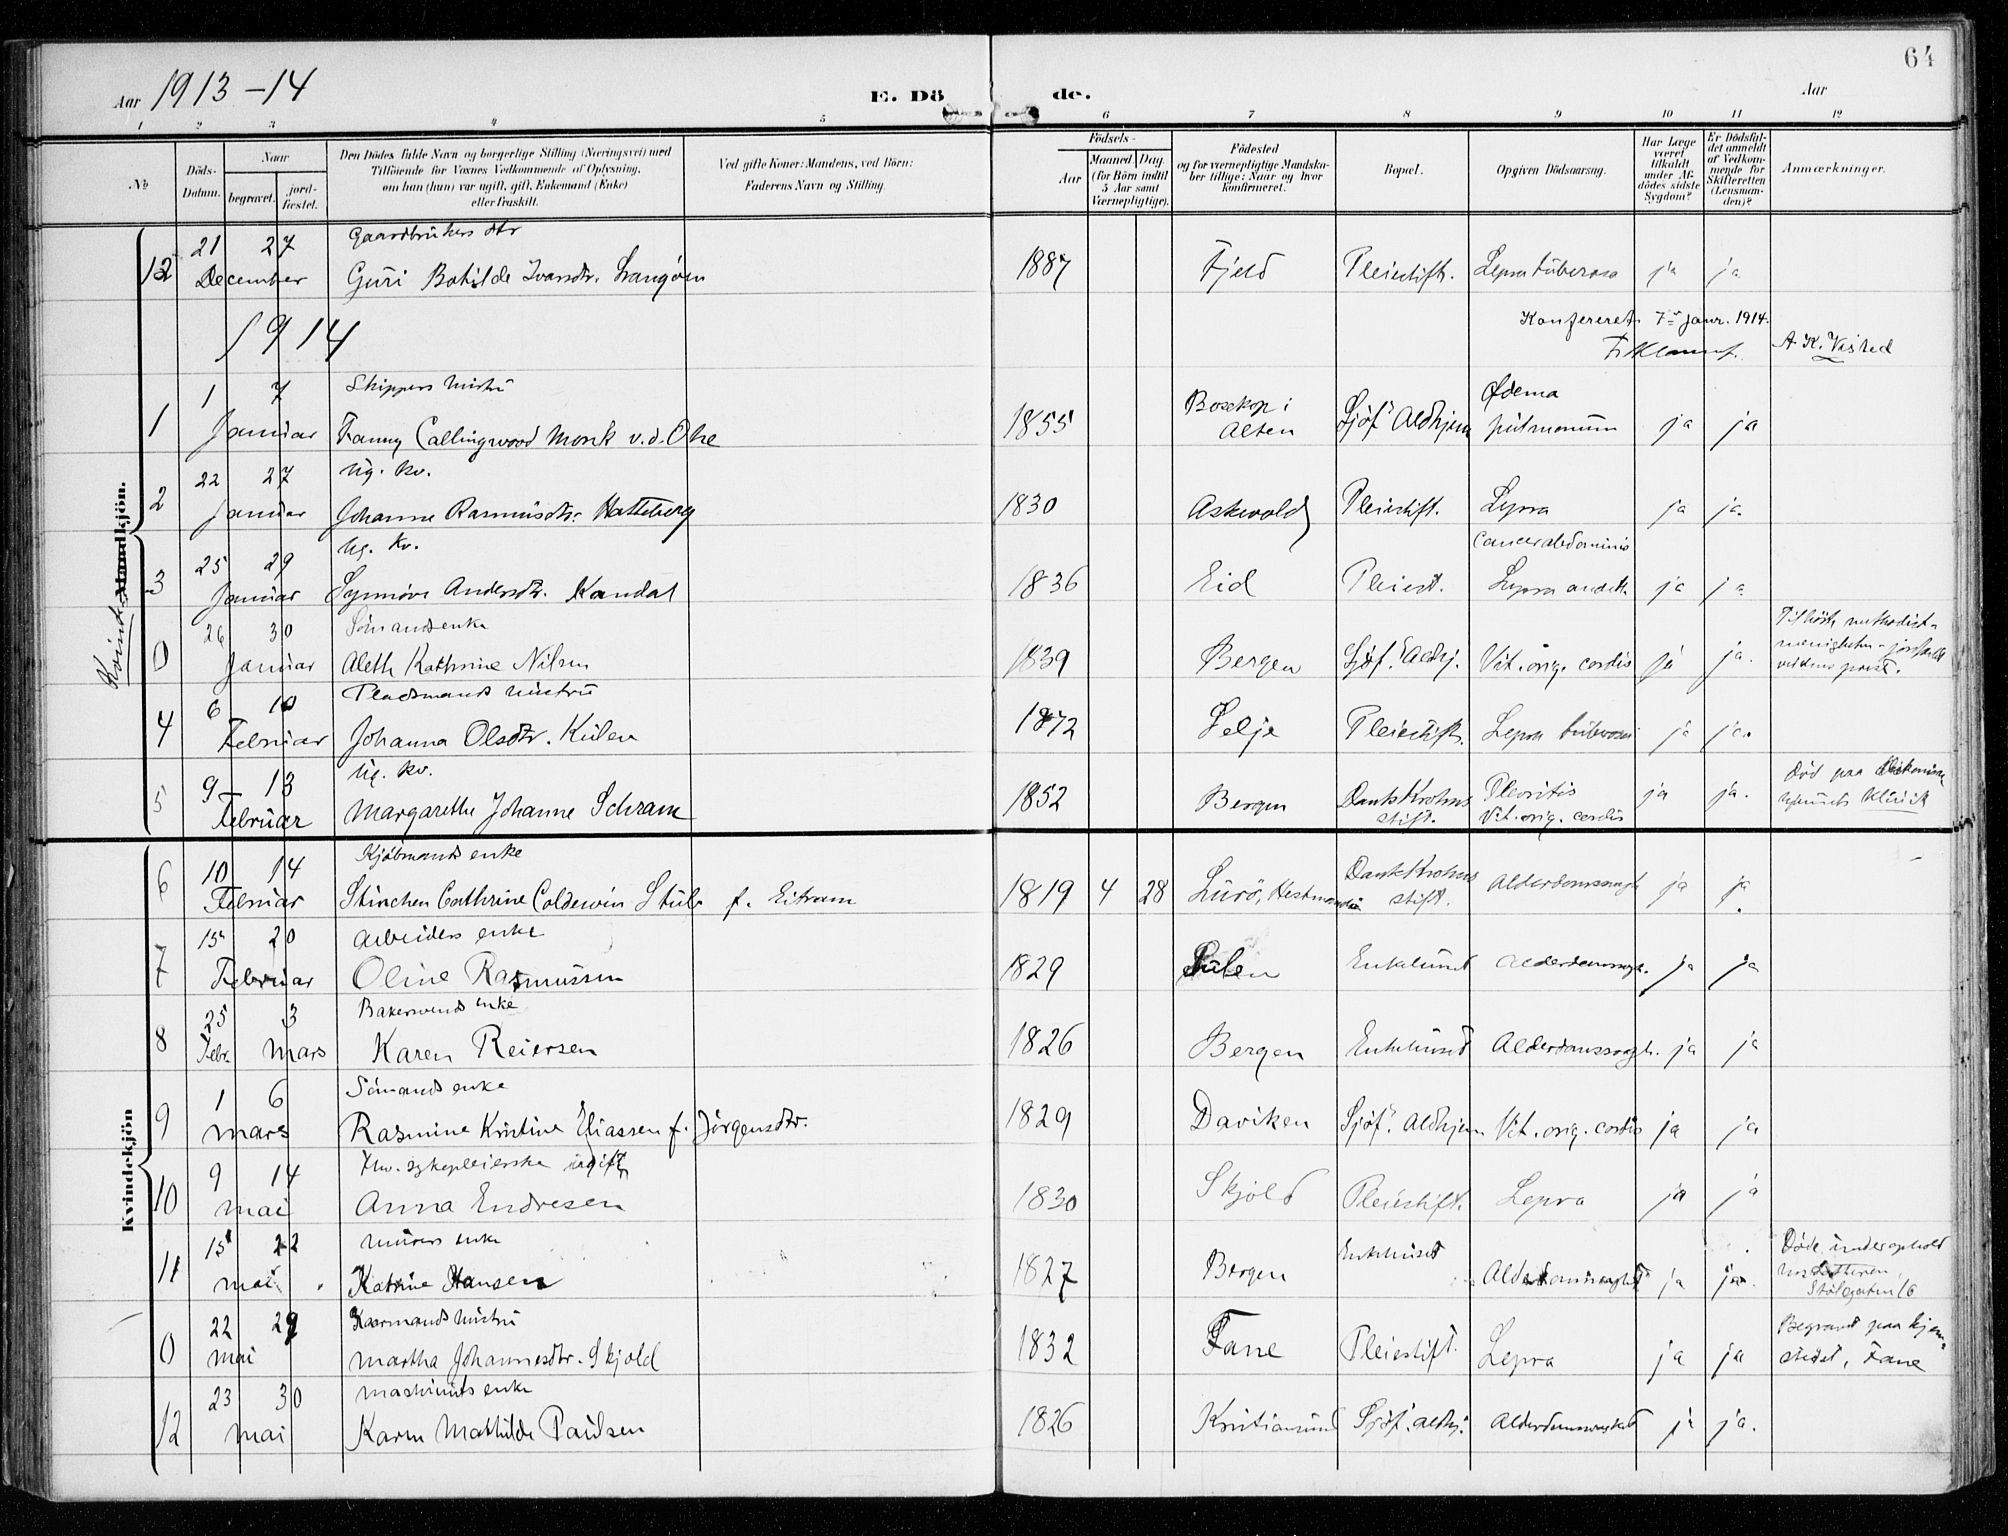 64
Aar 1913-14 E. Dö de. Aar
1 2 3 4 5 6 7 8 9 10 11 12
No Döds-Datum. Naar begravet. jord-fæstet. Den Dödes fulde Navn og borgerlige Stilling (Næringsvei) med Tilföiende for Voxnes Vedkommende af Oplysning, om han (hun) var ugift, gift, Enkemand (Enke) eller fraskilt. Ved gifte Koner: Mandens, ved Börn: Faderens Navn og Stilling. Födsels- Aar Maaned Dag. (for Börn indtil 5 Aar samt Værnepligtige). Födested og for værnepligtige Mandskaber tillige: Naar og hvor konfirmeret. Bopæl. Opgiven Dödsaarsag. Har Læge været tilkaldt under Afdödes sidste Sygdom? Er Dödsfaldet anmeldt af Vedkommende for Skifteretten (Lensmanden)? Anmærkninger.
21 27 Gaardbrukers dtr
12 December Guri Botilde Ivarsdtr. 1887 Fjeld Pleiestift. Lepra tuberosa ja ja
1914 Konfereret 7 januar. 1914. A. K. Visted
1 7 Skippers hustru Bosekop i Ødema
1 Januar Fanny Callingwood Monk v.d. Ohe 1855 Alten Sjöf. Aldhjem pulmonum ja ja
22 27 Ug. kv.
2 Januar Johanne Rasmusdtr. Hatteberg 1830 Askvold Pleiestift. Lepra ja ja.
25 29 Ug. kv. Cancer abdominis
3 Januar Synnöve Andersdtr. Kandal 1836 Eid Pleiest. Lepra ja ja
Kvinde Mandkjön.
26 30 Sömandsenke Tilhörte methodist-
0 Januar Aleth Kathrine Nilsen 1839 Bergen Sjöf. Aldhj. Vit. org. cordis ja ja.
6 10 Pladsmands hustru
4 Februar Johanna Olsdtr. Kulen 1872 Selje Pleiestift. Lepra tuberosa ja ja.
9 13 Ug. kv. Pleuritis Död paa
5 Februar Margarethe Johanne Schram 1852 Bergen Dankt Krohns stift. Vit. org. cordis ja ja. Klinick
10 14 Kjöbmands enke
6 Februar Stinchen Cathrine Coldewin Stub f. Eitram 1819 4 28 Lurö, Dankt Krohns stift. Alderdomssvagh ja ja.
15 20 Arbeiders enke
7 Februar Oline Rasmussen 1829 Enkehuset Alderdomssvagh. ja ja
25 3 Bakersvends enke
8 Febr. Mars Karen Reiersen 1826 Bergen Enkehuset Alderdomssvagh. ja ja
1 6 Sömands enke
9 Mars Rasmine Kristine Eliassen f. Jörgensdtr. 1829 Daviken Sjöf. Aldhjem Vit. org. cordis ja ja
Kvindekjön
9 14 sykepleierske ugift
10 Mai Anna Endresen 1830 Skjold Pleiestift. Lepra ja ja
15 22 Murers enke Enkehuset Döde under ophold
11 Mai Katrine Hansen 1827 Bergen Alderdomssvaghet ja ja.
22 29 Kaarmands hustru Begravet paa hjem-
0 Mai Martha Johannesdtr. Skjold 1832 Fane Pleiestift. Lepra ja ja stedet, Fane
23 30 Maskinists enke
12 Mai Karen Mathilde Paulsen 1826 Kristiansund Sjöf. aldhj. Alderdomssvakhet ja ja.